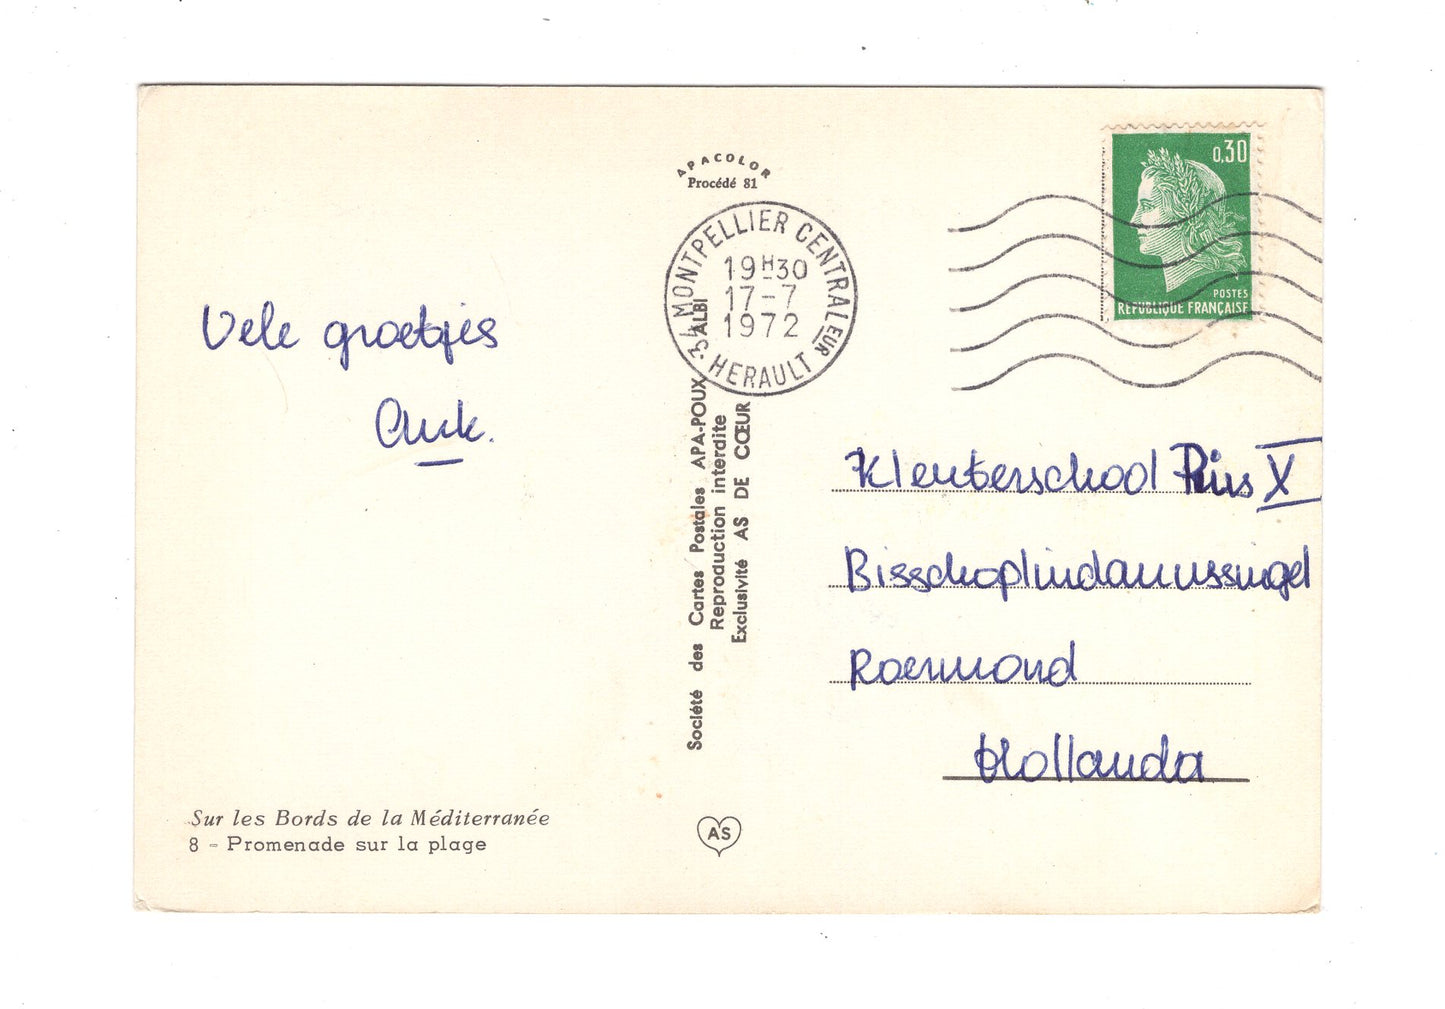 APACOLOR
Procédé 81
0,30
POSTES
REPUBLIQUE FRANÇAISE
34 MONTPELLIER CENTRALEUR
19H30
17-7
1972
HERAULT
Vele groetjes
Société des Cartes Postales APA-POUX - ALBI
Reproduction interdite
Exclusivité AS DE CŒUR
Kleuterschool Pius X
Bisschoplindanussingel
Roermond
Hollanda
Sur les Bords de la Méditerranée
8 - Promenade sur la plage
AS